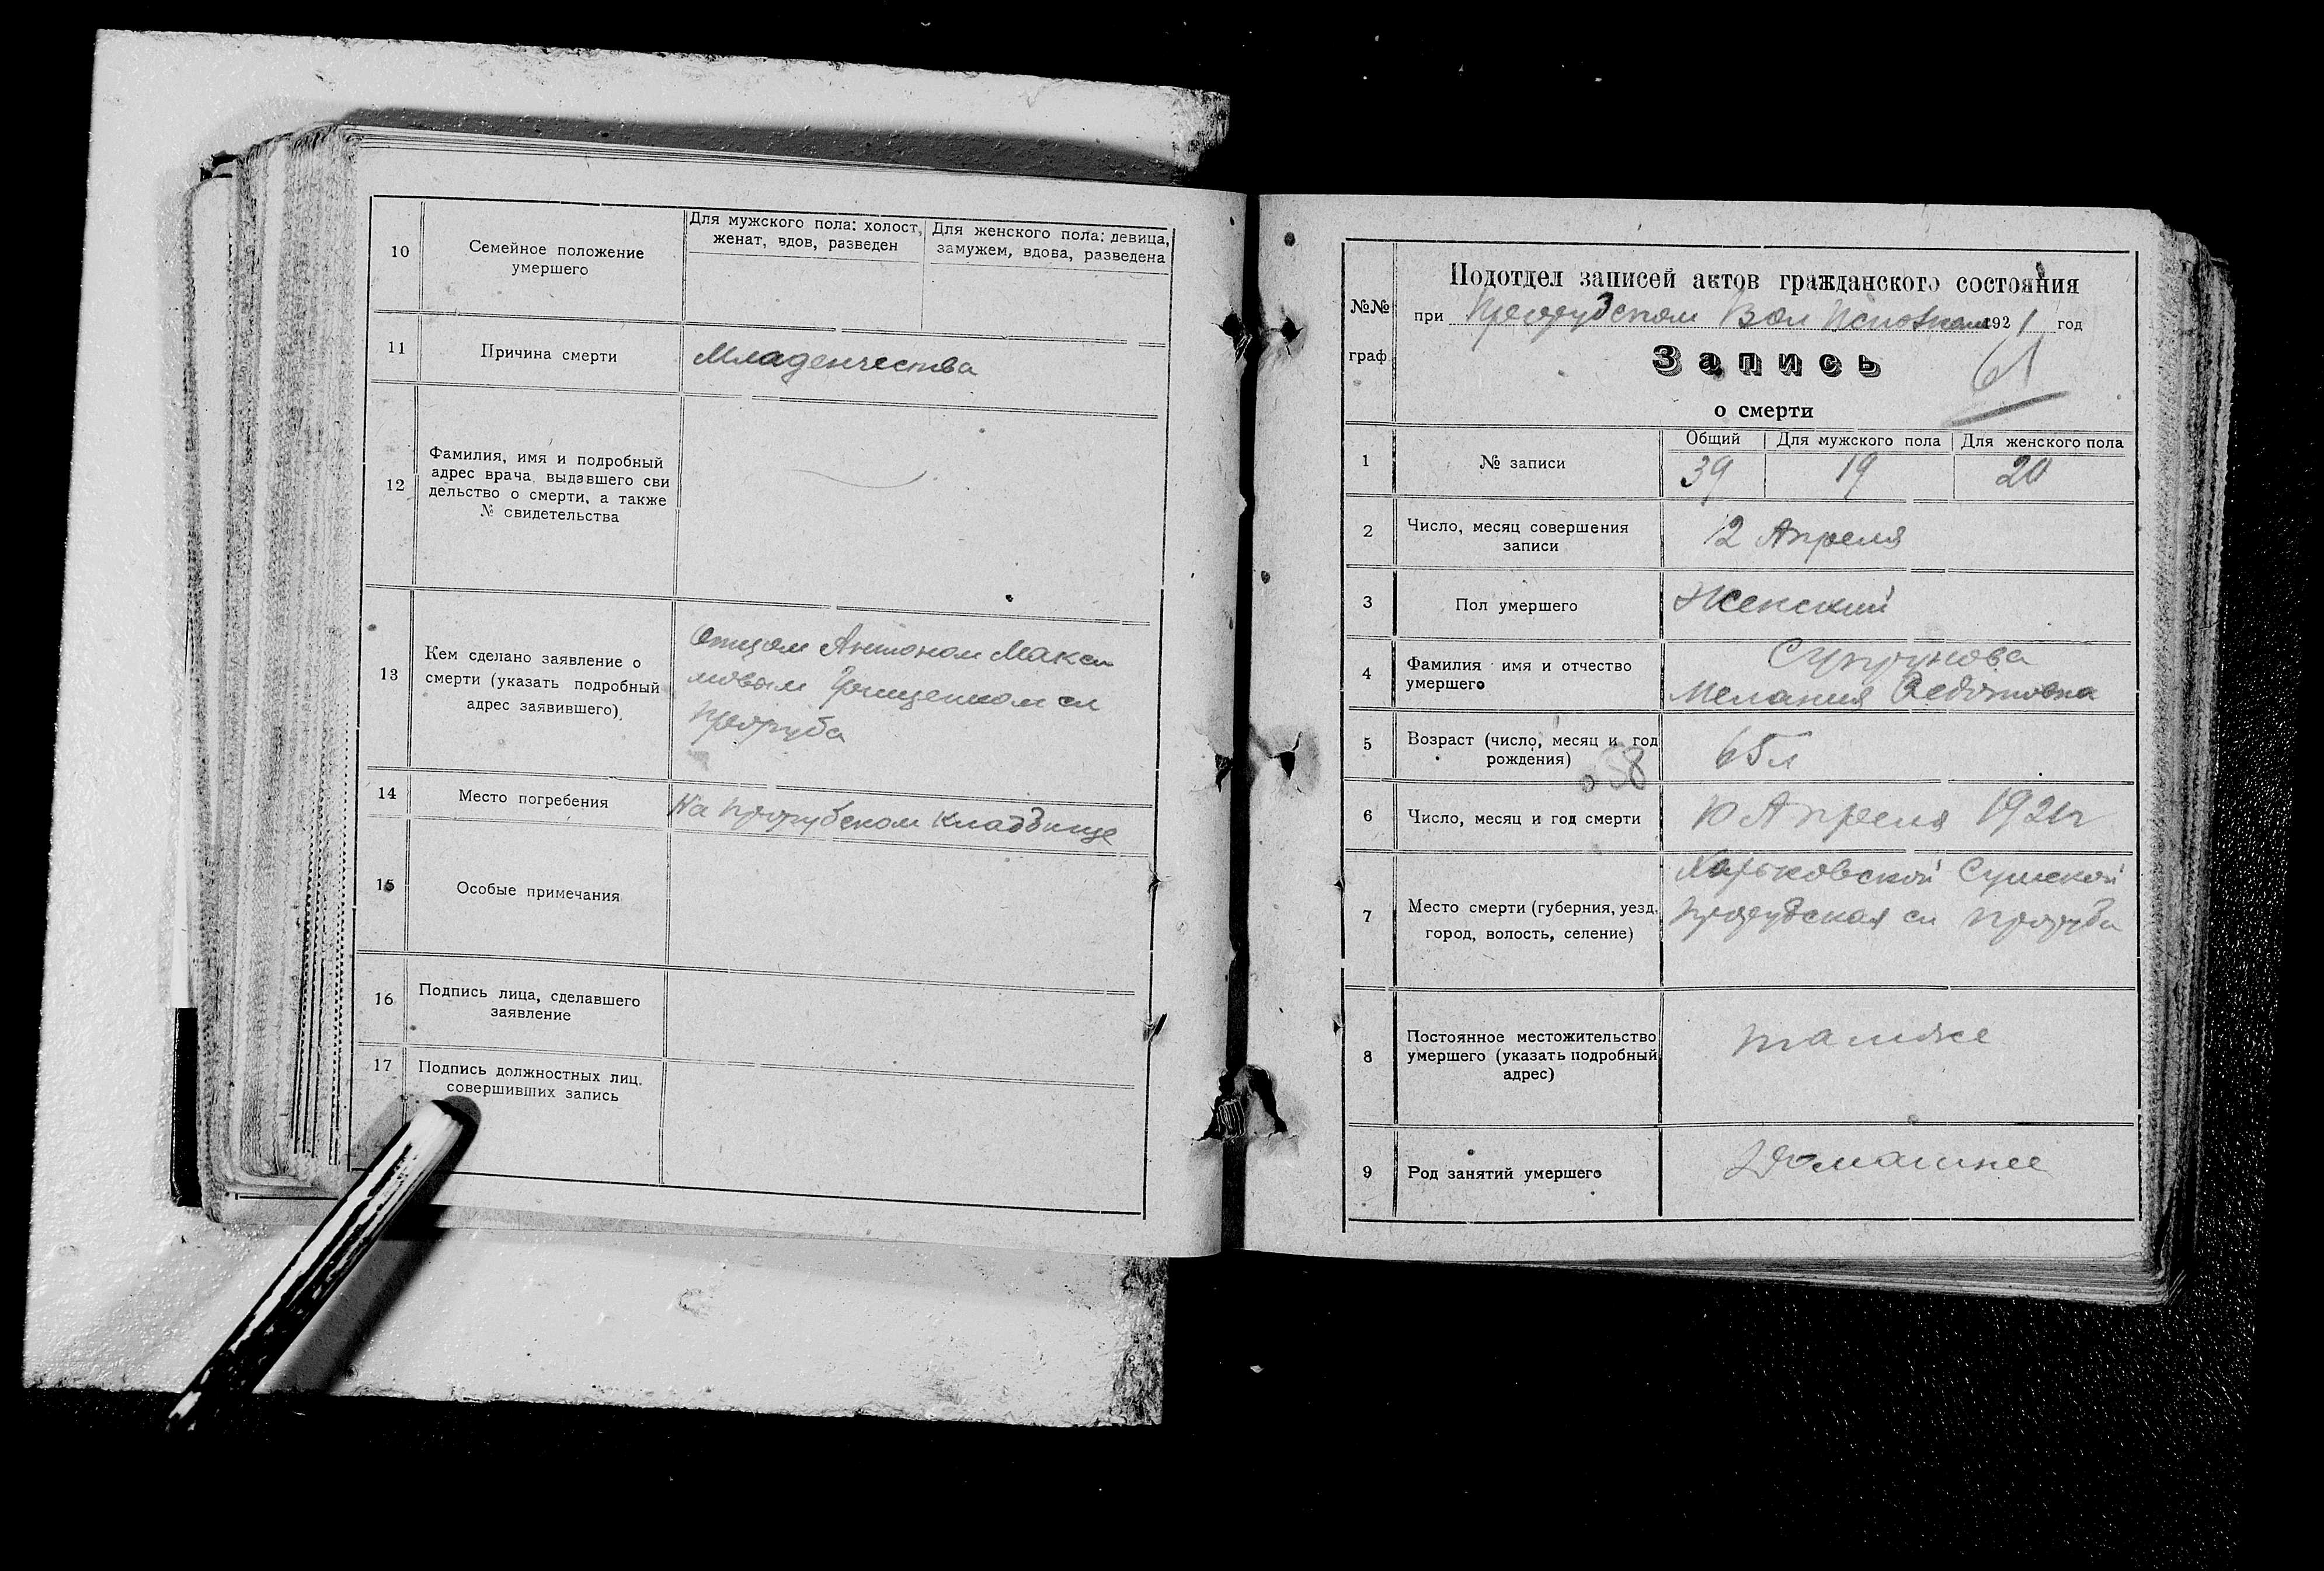 10
Семейное положение
умершего
Для мужского пола: холост,
женат, вдов, разведен
Для женского пола: девица,
замужем, вдова, разведена
11
Причина смерти
Младенчества
12
Фамилия, имя и подробный
адрес врача, выдавшего сви
дельство о смерти, а также
№ свидетельства
13
Кем сделано заявление о
смерти (указать подробный
адрес заявившего)
Отцом Антоном Макси
мовым Грищенком сл
Проруба
14
Место погребения
На прорубском кладбище
15
Особые примечания
16
Подпись лица, сделавшего
заявление
17
Подпись должностных лиц,
совершивших запись
№№
граф.
Подотдел записей актов гражданского состояния
при Прорубском Вол Исполкоме 1921 год
Запись
61
о смерти
1
№ записи
Общий
Для мужского пола
Для женского пола
39
19
20
2
Число, месяц совершения
записи
12 Апреля
3
Пол умершего
Женский
4
Фамилия имя и отчество
умершего
Супрунова
Мелания Федотовна
5
Возраст (число, месяц и год
рождения)
65 л
58
6
Число, месяц и год смерти
10 Апреля 1921 г
7
Место смерти (губерния, уезд,
город, волость, селение)
Харьковской Сумской
Прорубская сл Проруба
8
Постоянное местожительство
умершего (указать подробный
адрес)
тамже
9
Род занятий умершего
Домашнее